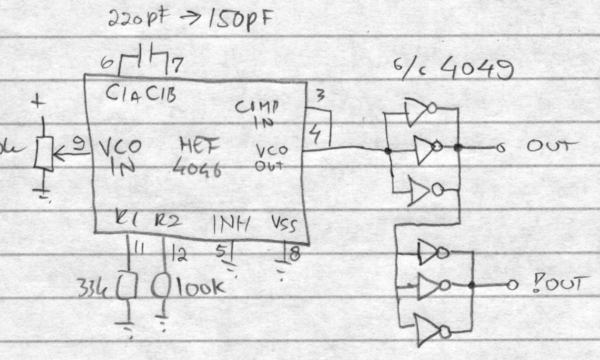 220pf → 150pF
6 7
6/c 4049
C1A C1B
+
3
CIMP
IN
4
9
VCO
IN
HEF
4046
VCO
OUT
OUT
R1 R2 INH VSS
11 12 5 8
33k 100k
!OUT